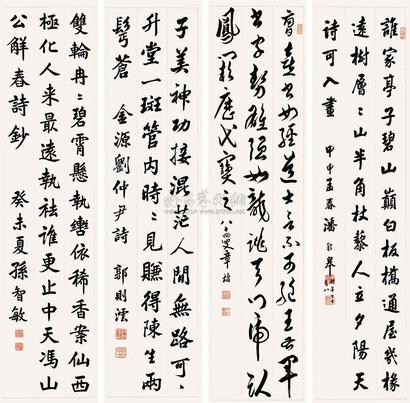 誰家亭子碧山巔白板橋通屋幾椽
遠樹層層山半角杖藜人立夕陽天
詩可入畫
甲申孟春潘齡皋
時年七十有八
書家勢雄強如龍跳天門虎臥
鳳闕歷代寶之
八四叟章梫
子美神功接混茫人間無路可
升堂一斑管內時時見賺得陳生兩
髩蒼
金源劉仲尹詩
郭則澐
雙輪冉冉碧霄懸執蠻依稀香案仙西
極化人來最遠執袪誰更止中天馮山
公解春詩鈔
癸未夏孫智敏